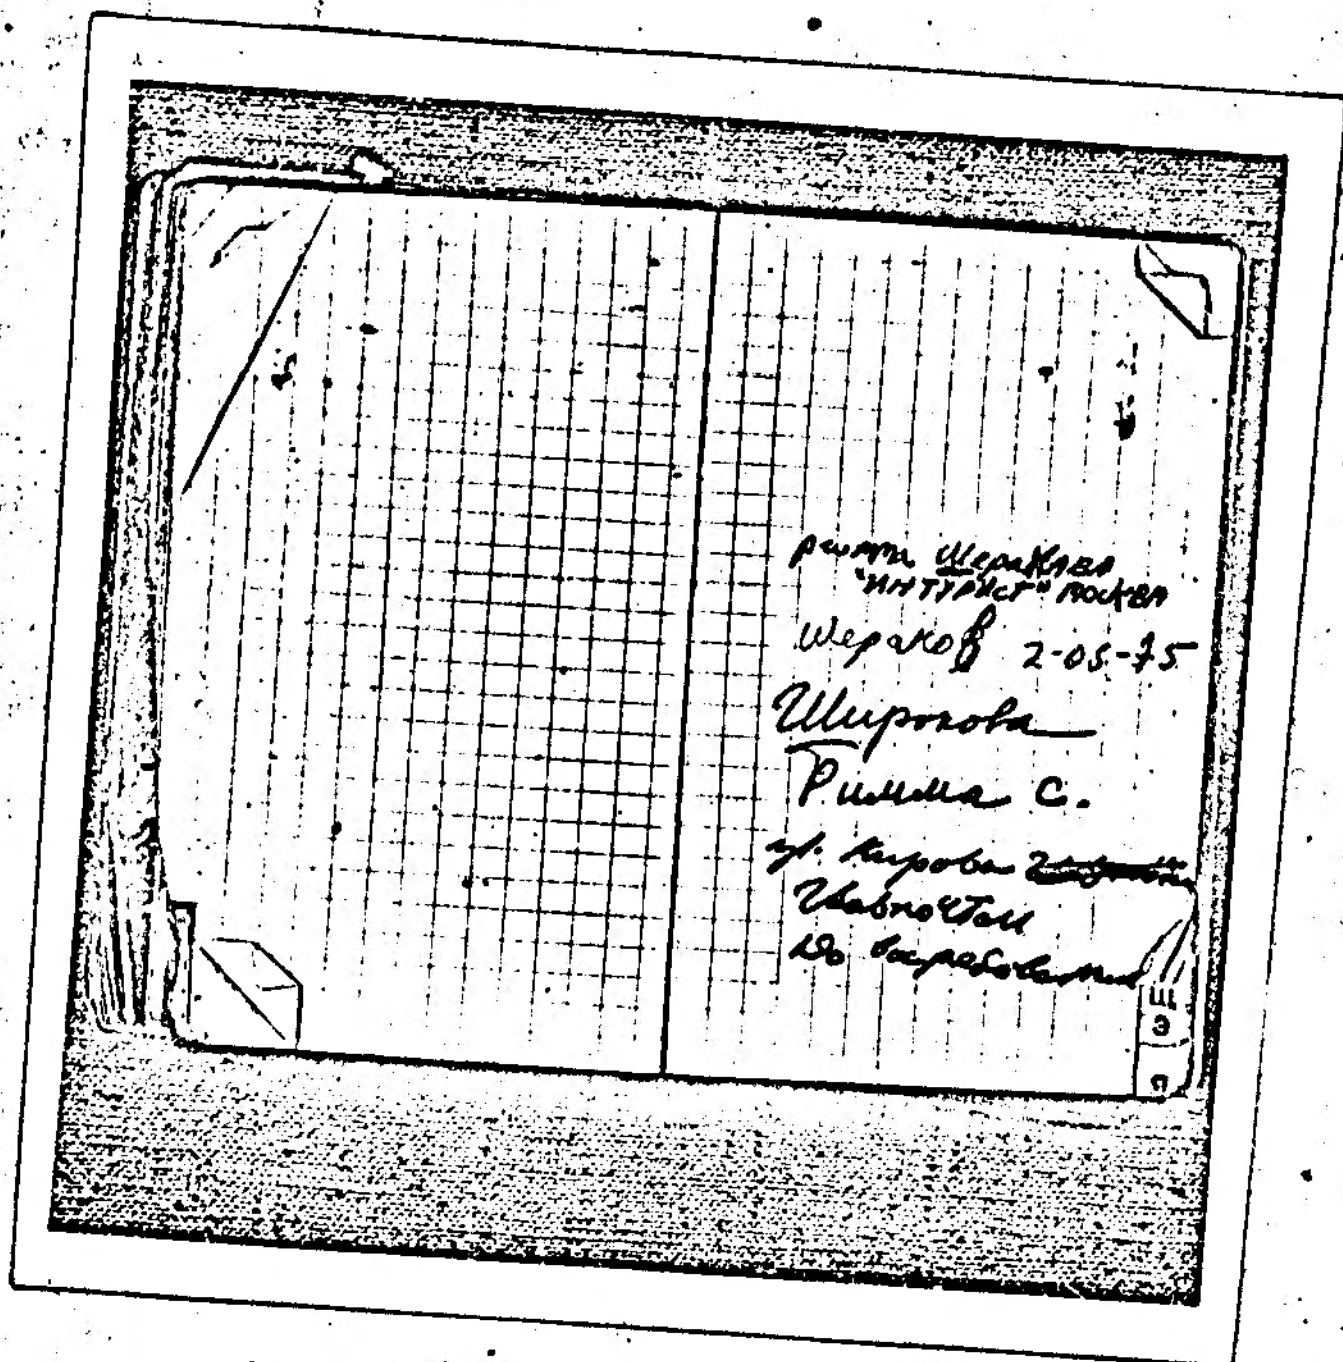 римма Шеракава
"ИНТУРИСТ" МОСКВА
Шераков 2-05-75
Широкова
Римма С.
ул. Кирова
Главпочтам
До востребования
Щ
Э